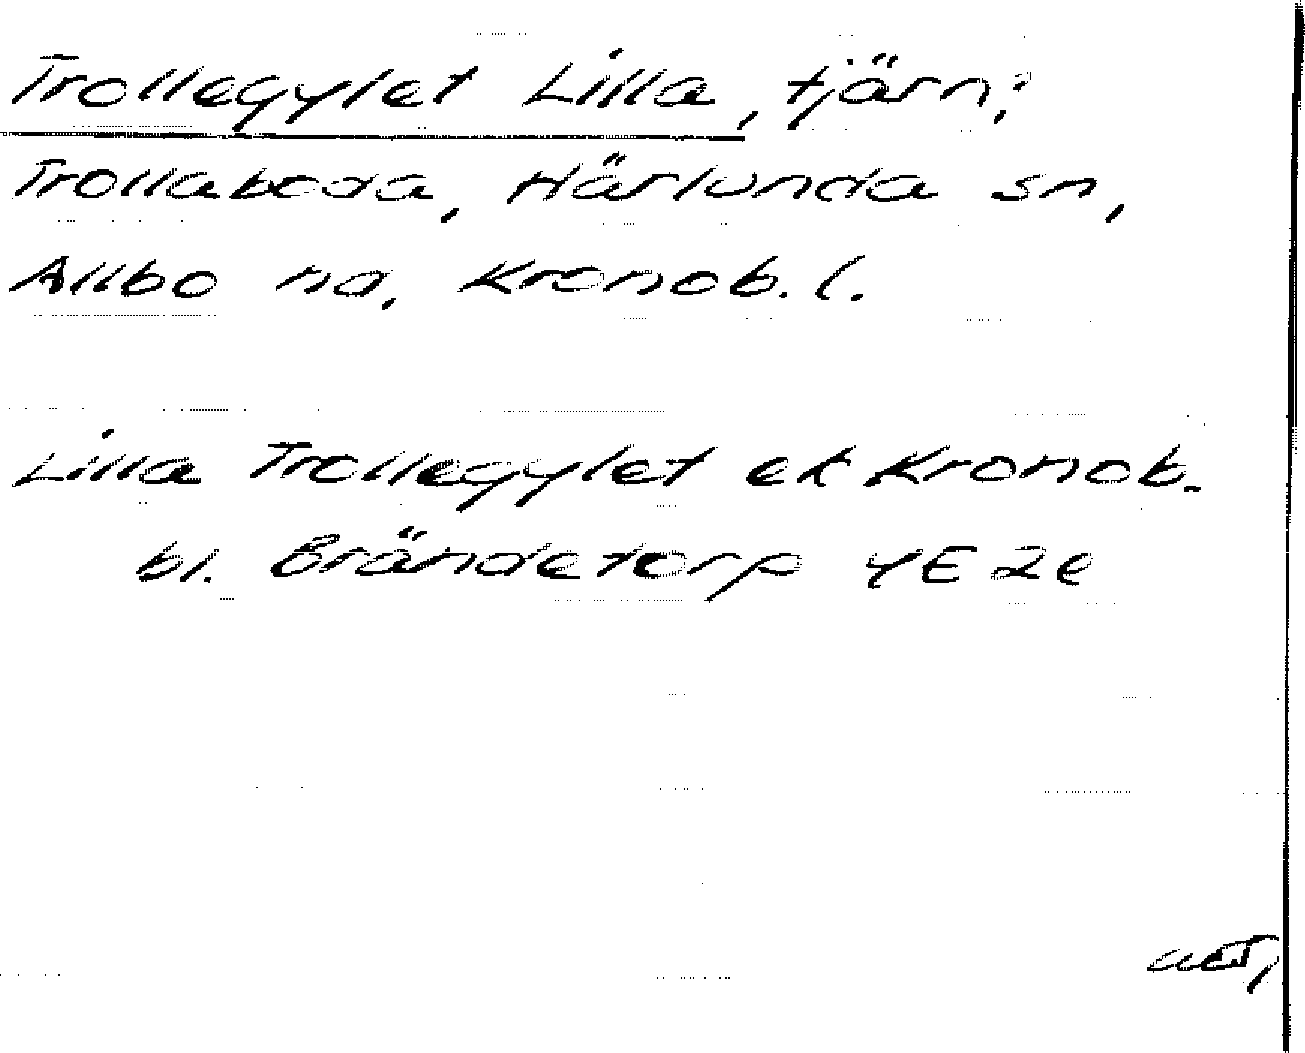 Trollegylet Lilla, tjärn;
Trollaboda, Härlunda sn,
Allbo hd, Kronob. l.
Lilla Trollegylet ek Kronob.
bl. Brändetorp 4E 2e